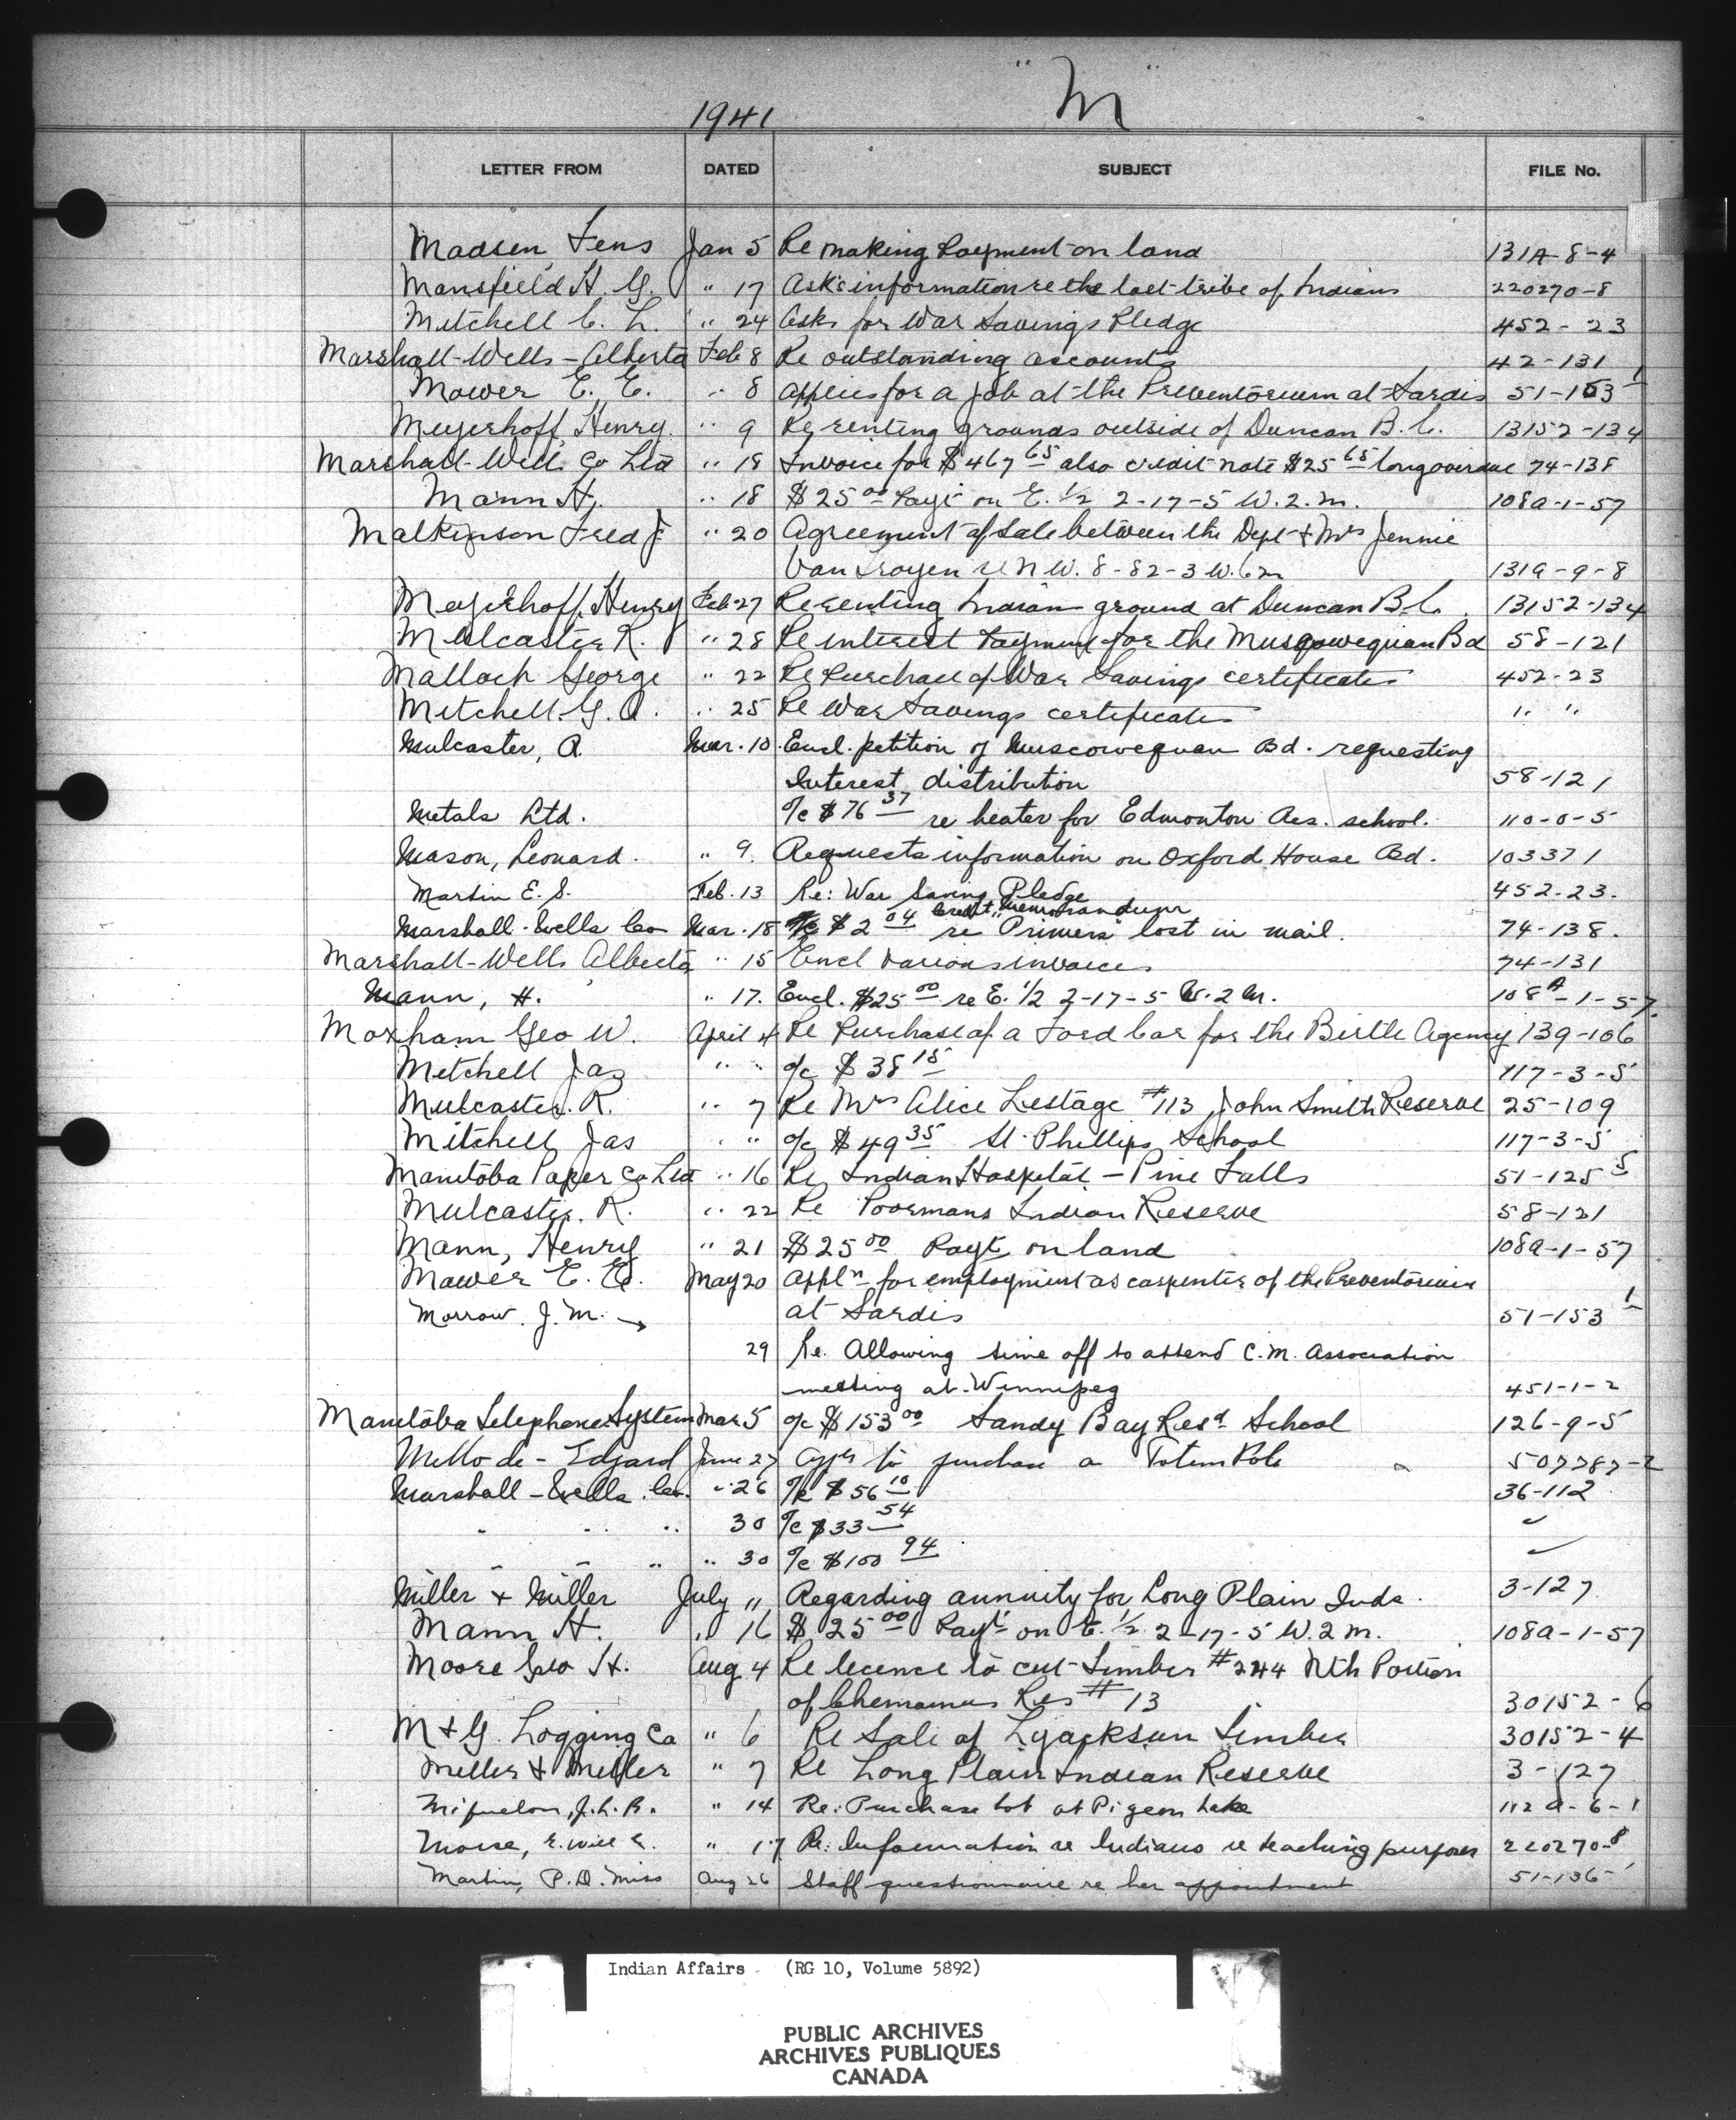 1941 "M"
LETTER FROM DATED SUBJECT FILE No.
Madsen, Jens Jan 5 Re making payment on land 131A-8-4
Mansfield H. G. " 17 Asks information re the lost tribe of Indians 220270-8
Mitchell C. L. " 24 Asks for War Savings Pledge 452-23
Marshall-Wells-Alberta Feb 8 Re outstanding accounts 42-131
Mower E. E. " 8 Applies for a job at the Preventorium at Sardis 51-153 1
Meyerhoff, Henry " 9 Re renting grounds outside of Duncan B.C. 13152-134
Marshall-Wells Co Ltd " 18 Invoice for $467 65 also credit note $25 65 long overdue 74-138
Mann H. " 18 $25 00 Payt on E. 1/2 2-17-5 W.2.m. 108a-1-57
Malkinson Fred J. " 20 Agreement of Sale between the Dept & Mrs Jennie
Van re N.W. 8-82-3 W.6m 131a-9-8
Meyerhoff, Henry Feb 27 Re renting Indian ground at Duncan B.C. 13152-134
Mulcaster R. " 28 Re interest payment for the Musqowequan Bd 58-121
Malloch George " 22 Re Purchase of War Savings certificates 452-23
Mitchell G. A. " 25 Re War Savings certificates " "
Mulcaster, R. Mar. 10 Encl. petition of Muscowequan Bd. requesting
Interest distribution 58-121
Metals Ltd. o/c $76 37 re heater for Edmonton Res. school. 110-0-5
Mason, Leonard. " 9. Requests information on Oxford House Bd. 103371
Martin E. S. Feb. 13 Re: War Saving Pledge 452-23.
Marshall-Wells Co Mar. 18 Credit Memorandum $2 04 re "Primers" lost in mail. 74-138.
Marshall-Wells Alberta " 15 Encl various invoices 74-131
Mann, H. " 17. Encl. $25 00 re E. 1/2 2-17-5 W.2 M. 108A-1-57.
Moxham Geo W. April 4 Re Purchase of a Ford Car for the Birtle Agency 139-106
Mitchell Jas " " o/c $38 15 117-3-5
Mulcaster. R. " 7 Re Mrs Alice Lestage #113 John Smith Reserve 25-109
Mitchell Jas " " o/c $49 35 St. Phillips School 117-3-5
Manitoba Paper Co Ltd " 16 Re Indian Hospital - Pine Falls 51-125 5
Mulcaster. R. " 22 Re Poormans Indian Reserve 58-121
Mann, Henry " 21 $25 00 Payt on land 108a-1-57
Mawer E. E. May 20 Appln for employment as carpenter of the Preventorium
at Sardis 51-153 1
Morrow. J. M. →
29 Re. Allowing time off to attend C.M. Association
meeting at Winnipeg 451-1-2
Manitoba Telephone System Mar 5 o/c $153 00 Sandy Bay Resd School 126-9-5
Mello de - Edgard June 27 to purchase a Totem Pole 507787-2
Marshall-Wells Co. " 26 o/c $56 10 36-112
" " " 30 o/c $33 54 ✓
" " " " 30 o/c $100 94 ✓
Miller & Miller July " Regarding annuity for Long Plain Inds. 3-127
Mann H. " 16 $25 00 Payt on E. 1/2 2-17-5 W.2 m. 108a-1-57
Moore Geo H. Aug 4 Re licence to cut Timber #244 Nth Portion
of Chemainus Res #13 30152-6
M & G. Logging Co " 6 Re Sale of Lyackson Timber 30152-4
Miller & Miller " 7 Re Long Plain Indian Reserve 3-127
Miquelon, J. L. R. " 14 Re: Purchase lot at Pigeon Lake 112 A-6-1
Morse, E. Will E. " 17 Re: Information re Indians re teaching purposes 220270-8
Martin, P. D. Miss Aug 26 Staff questionnaire re her appointment 51-136
Indian Affairs (RG 10, Volume 5892)
PUBLIC ARCHIVES
ARCHIVES PUBLIQUES
CANADA